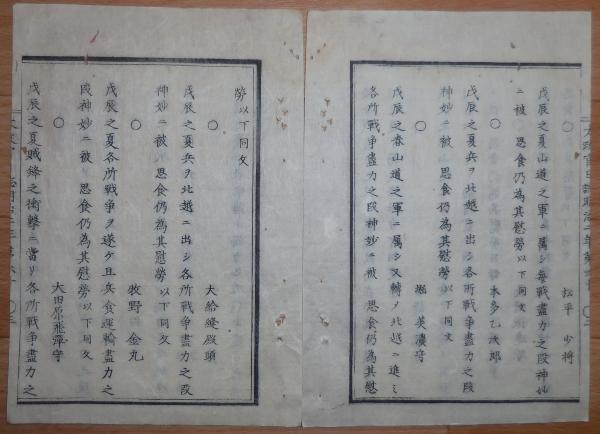 松平 少将
戊辰之夏山道之軍ニ属シ毎戦盡力之段神妙
ニ被 思食仍為其慰勞以下同文
○ 本多乙次郎
戊辰之夏兵ヲ北越ニ出シ各所戦争盡力之段
神妙ニ被 思食仍為其慰勞以下同文
○ 堀 美濃守
戊辰之春山道之軍ニ属シ又轉シ北越ニ進ミ
各所戦争盡力之段神妙ニ被 思食仍為其慰
勞以下同文
○ 大給縫殿頭
戊辰之夏兵ヲ北越ニ出シ各所戦争盡力之段
神妙ニ被 思食仍為其慰勞以下同文
○ 牧野 金丸
戊辰之夏各所戦争ヲ遂ケ且兵食運輸盡力之
段神妙ニ被 思食仍為其慰勞以下同文
○ 大田原飛彈守
戊辰之夏賊鋒之衝撃ニ當リ各所戦争盡力之